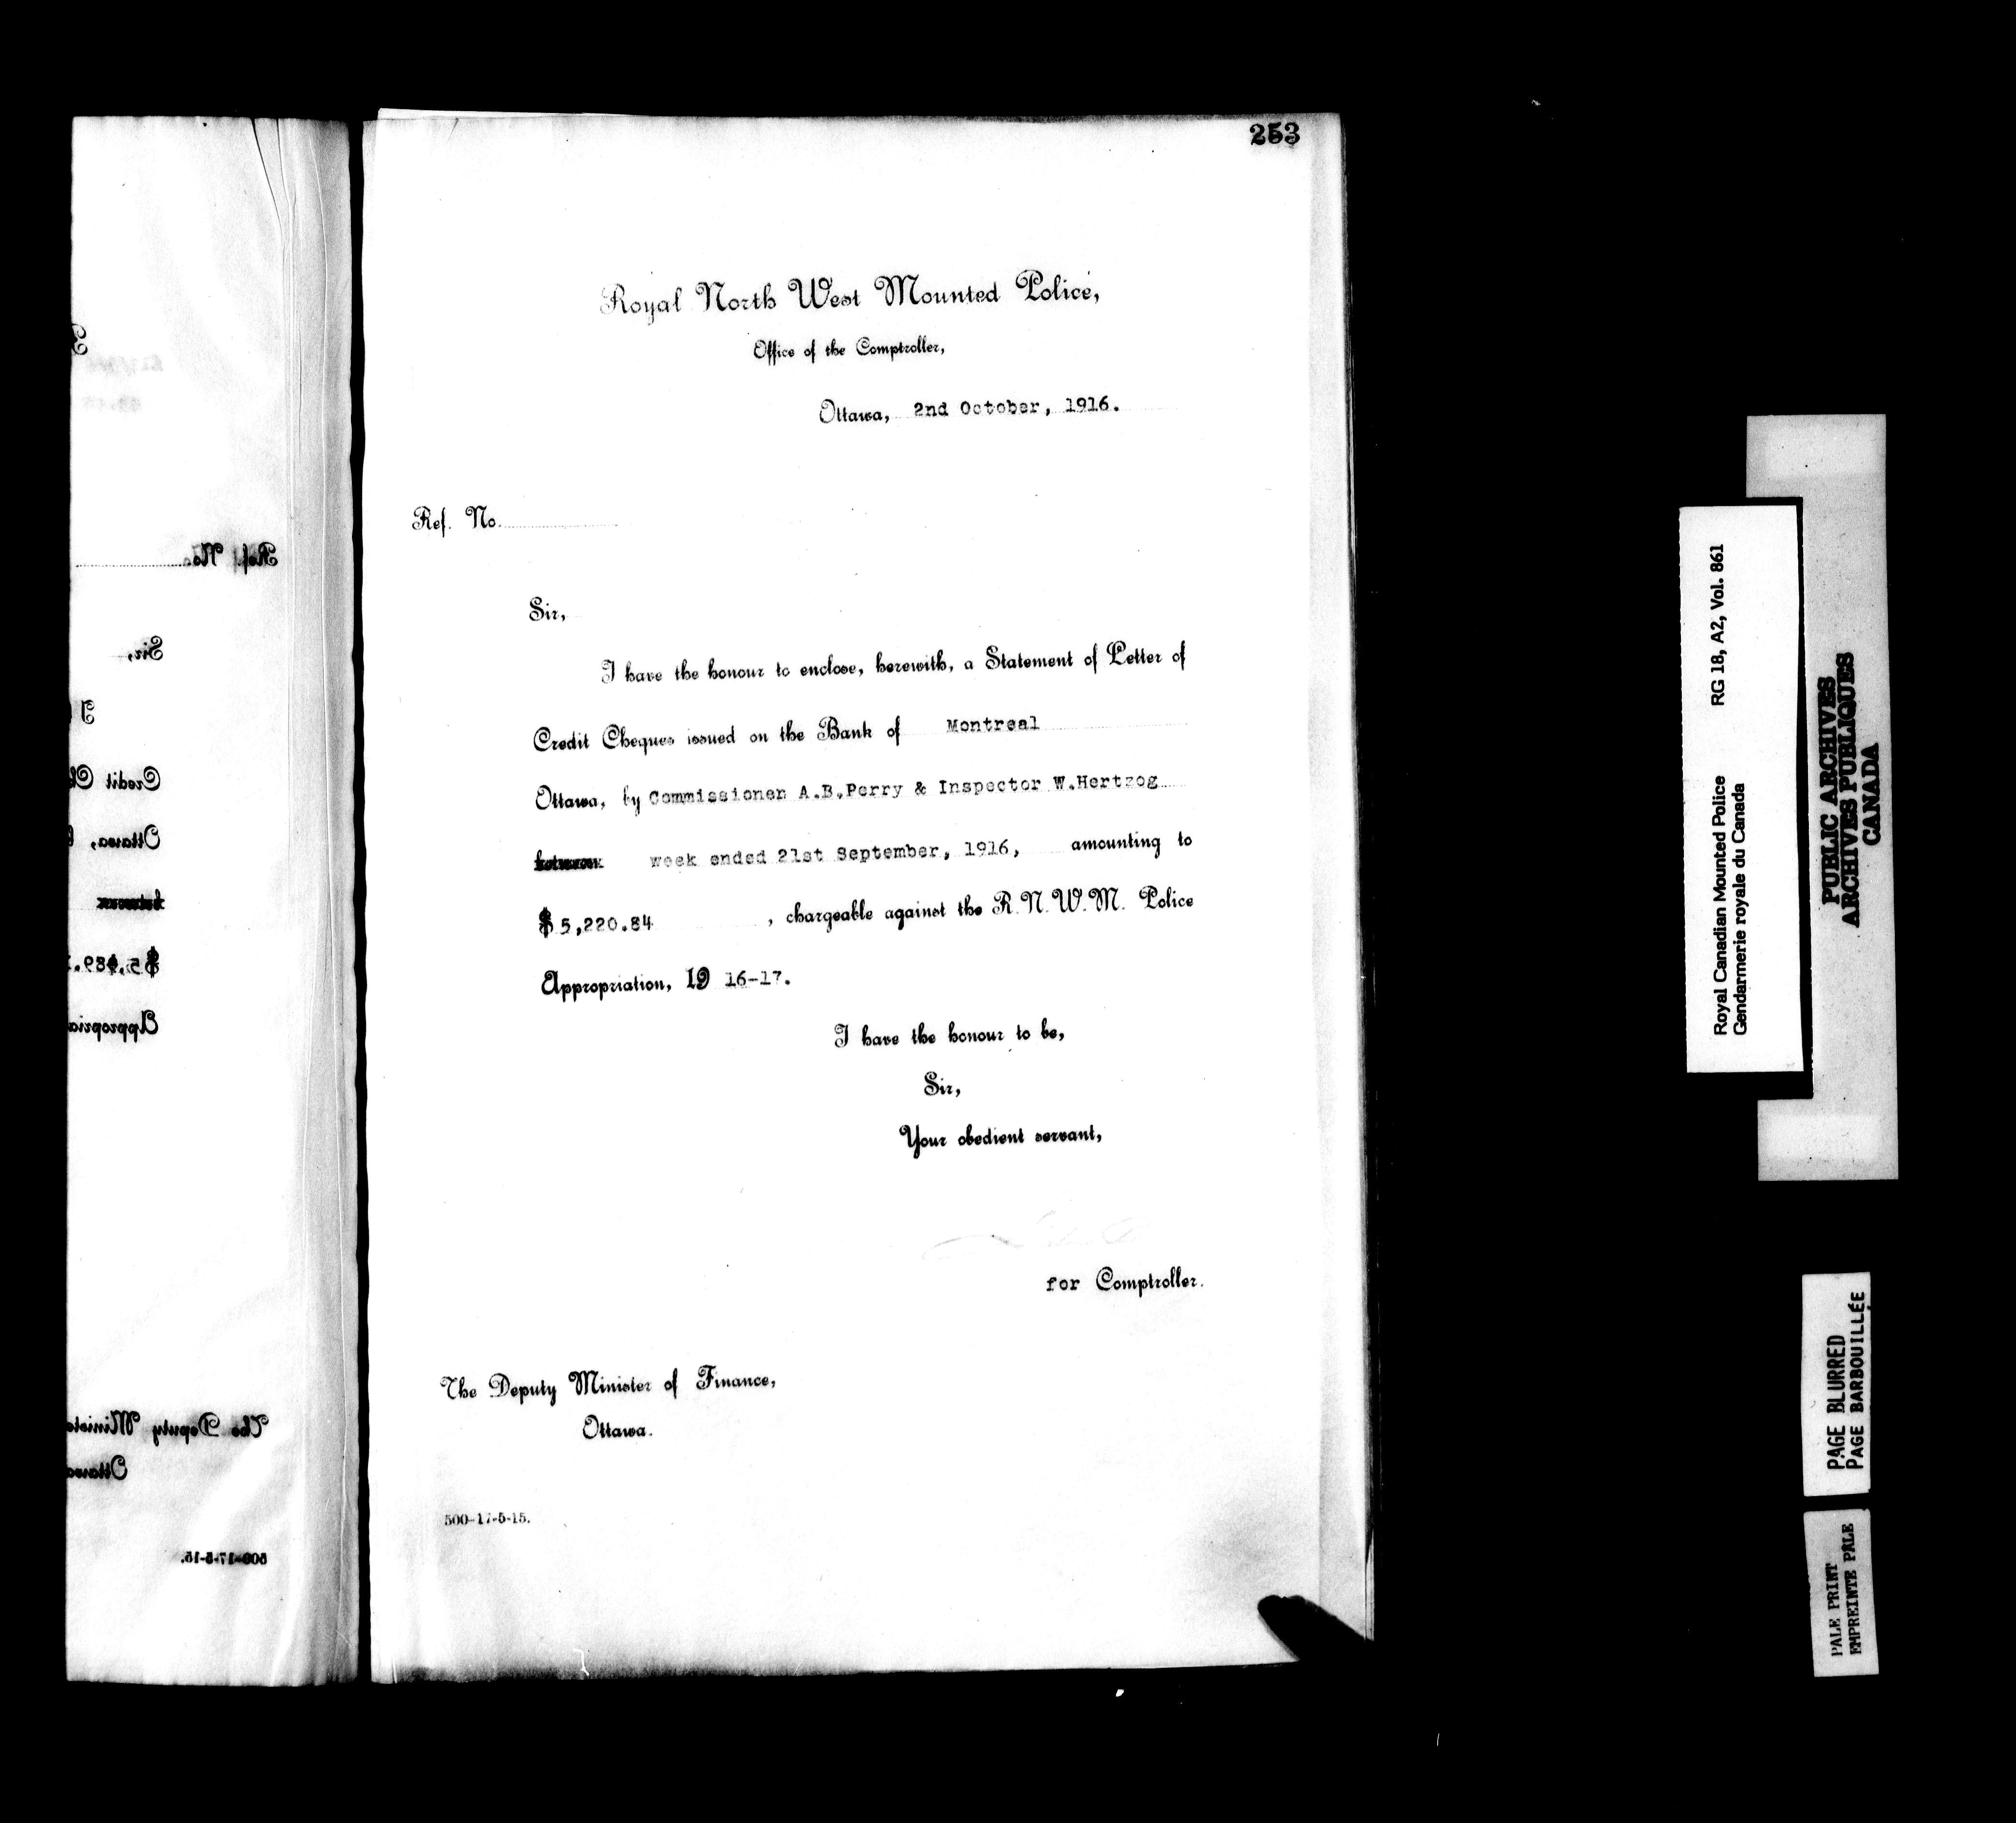 253
Royal North West Mounted Police,
Office of the Comptroller,
Ottawa, 2nd October, 1916.
Ref. No.
Sir,
I have the honour to enclose, herewith, a Statement of Letter of
Credit Cheques issued on the Bank of Montreal
Ottawa, by Commissioner A.B.Perry & Inspector W.Hertzog
between week ended 21st September, 1916, amounting to
$5,220.84 , chargeable against the R.N.W.M. Police
Appropriation, 19 16-17.
I have the honour to be,
Sir,
Your obedient servant,
for Comptroller.
The Deputy Minister of Finance,
Ottawa.
500-17-5-15.
Ref. No.
Sir,
I
Credit Ch
Ottawa,
between
$5,
Appropria
The Deputy Ministe
Ottawa
500-17-5-15.
Royal Canadian Mounted Police RG 18, A2, Vol. 861
Gendarmerie royale du Canada
PUBLIC ARCHIVES
ARCHIVES PUBLIQUES
CANADA
PAGE BLURRED
PAGE BARBOUILLÉE
PALE PRINT
EMPREINTE PALE